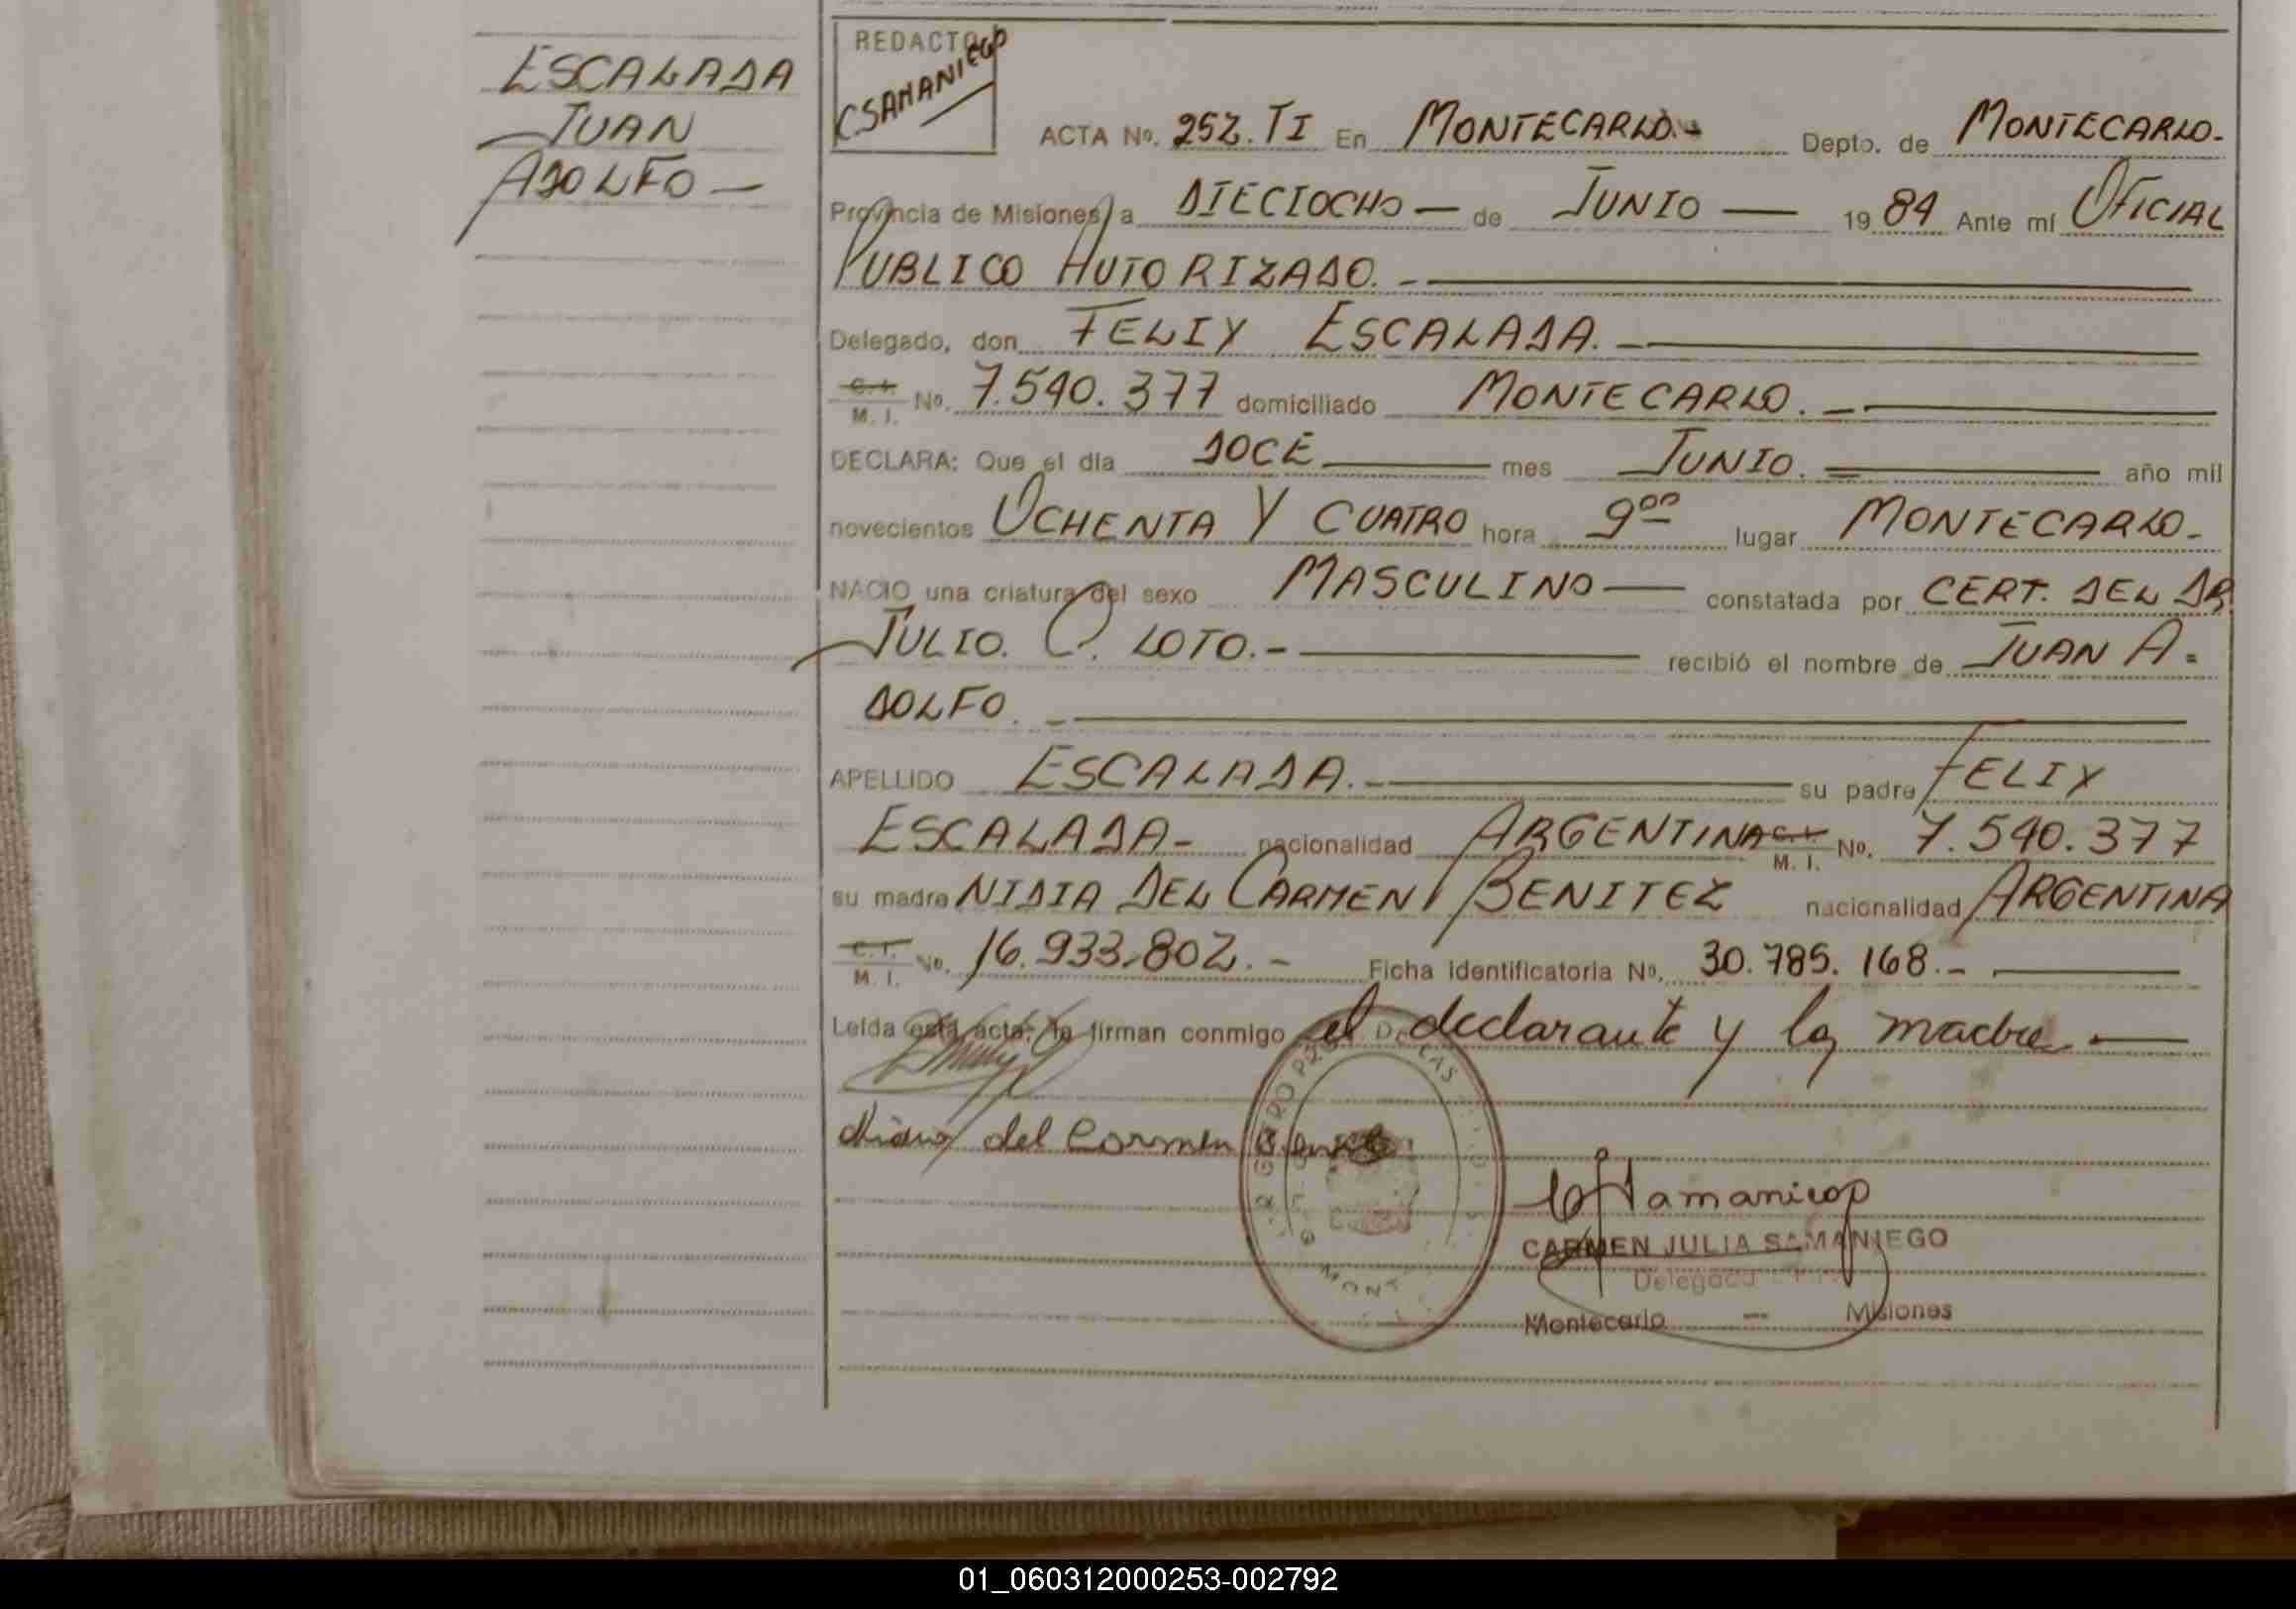 ESCALADA
JUAN
ADOLFO —
REDACTO
C. SAMANIEGO
ACTA Nº. 252. TI En MONTECARLO.- Depto. de MONTECARLO-
Provincia de Misiones, a DIECIOCHO — de JUNIO — 19 84 Ante mí OFICIAL
PUBLICO AUTORIZADO. -
Delegado, don FELIX ESCALADA. -
C. I. M. I. Nº. 7.540.377 domiciliado MONTECARLO. -
DECLARA: Que el día DOCE — mes JUNIO. = año mil
novecientos OCHENTA Y CUATRO hora 9ºº lugar MONTECARLO-
NACIO una criatura del sexo MASCULINO — constatada por CERT. DEL DR
JULIO. C. LOTO.- recibió el nombre de JUAN A=
DOLFO. -
APELLIDO ESCALADA.- su padre FELIX
ESCALADA- nacionalidad ARGENTINA C. I. M. I. Nº. 7.540.377
su madre NIDIA DEL CARMEN BENITEZ nacionalidad ARGENTINA
C. I. M. I. Nº. 16.933.802.- Ficha identificatoria Nº. 30.785.168.-
Leída esta acta, la firman conmigo el declarante y la madre. —
del Carmen
CARMEN JULIA SAMANIEGO
Delegada
Montecarlo — Misiones
01_060312000253-002792